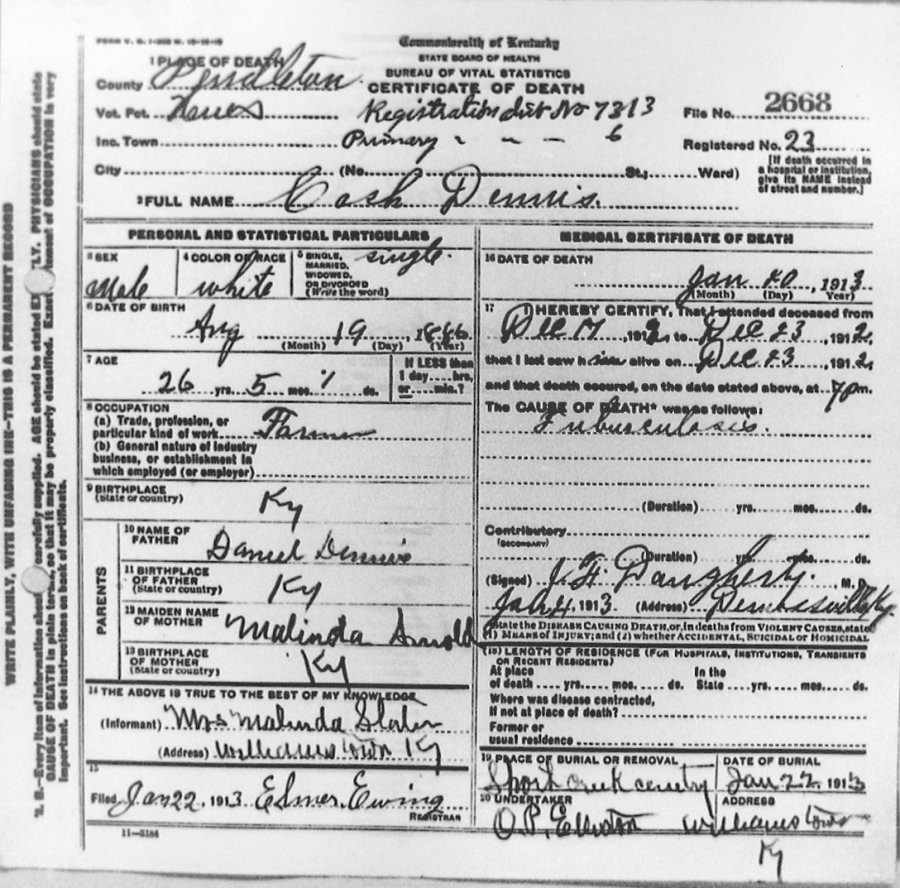 Commonwealth of Kentucky
STATE BOARD OF HEALTH
BUREAU OF VITAL STATISTICS
CERTIFICATE OF DEATH
1 PLACE OF DEATH
County Pendleton
Vot. Pct. Registration dist No 7313 File No. 2668
Inc. Town Primary " " " 6 Registered No. 23
City (No. St.; Ward)
[If death occurred in a hospital or institution, give its NAME instead of street and number.]
2 FULL NAME Cash Dennis.
PERSONAL AND STATISTICAL PARTICULARS
3 SEX Male
4 COLOR OR RACE white
5 SINGLE, MARRIED, WIDOWED, OR DIVORCED (Write the word) single.
6 DATE OF BIRTH
Aug 19 1886
(Month) (Day) (Year)
7 AGE
26 yrs. 5 mos. 1 ds.
If LESS than 1 day hrs. or min.?
8 OCCUPATION
(a) Trade, profession, or
particular kind of work Farmer
(b) General nature of industry
business, or establishment in
which employed (or employer)
9 BIRTHPLACE
(State or country) Ky
PARENTS
10 NAME OF FATHER Daniel Dennis
11 BIRTHPLACE OF FATHER (State or country) Ky
12 MAIDEN NAME OF MOTHER Malinda Arnold
13 BIRTHPLACE OF MOTHER (State or country) Ky
14 THE ABOVE IS TRUE TO THE BEST OF MY KNOWLEDGE
(Informant) Mrs Malinda Slater
(Address) Williamstown Ky
15
Filed Jan 22, 1913 Elmer Ewing
REGISTRAR
11-3184
MEDICAL CERTIFICATE OF DEATH
16 DATE OF DEATH
Jan 20 1913
(Month) (Day) Year)
17 I HEREBY CERTIFY, That I attended deceased from
Dec 17, 1912 to Dec 23, 1912,
that I last saw him alive on Dec 23, 1912,
and that death occured, on the date stated above, at 7 pm.
The CAUSE OF DEATH* was as follows:
Tubusculosis.
(Duration) yrs. mos. ds.
Contributory
(SECONDARY)
(Duration) yrs. mos. ds.
(Signed) J. H. Daugherty. M. D.
1913 (Address) Demossville Ky.
State the DISEASE CAUSING DEATH, or, in deaths from VIOLENT CAUSES, state
(1) MEANS OF INJURY; and (2) whether ACCIDENTAL, SUICIDAL or HOMICIDAL
(18) LENGTH OF RESIDENCE (FOR HOSPITALS, INSTITUTIONS, TRANSIENTS
OR RECENT RESIDENTS)
At place In the
of death yrs. mos. ds. State yrs. mos. ds.
Where was disease contracted,
If not at place of death?
Former or
usual residence
19 PLACE OF BURIAL OR REMOVAL DATE OF BURIAL
Short creek Jan 22 1913
20 UNDERTAKER ADDRESS
O.P. Elliston Williamstown
Ky
WRITE PLAINLY, WITH UNFADING INK—THIS IS A PERMANENT RECORD
N. B.—Every item of information should carefully supplied. AGE should be stated PHYSICIANS should state
CAUSE OF DEATH in plain so that it may be properly classified. of OCCUPATION is very
important. See instructions on back of certificate.